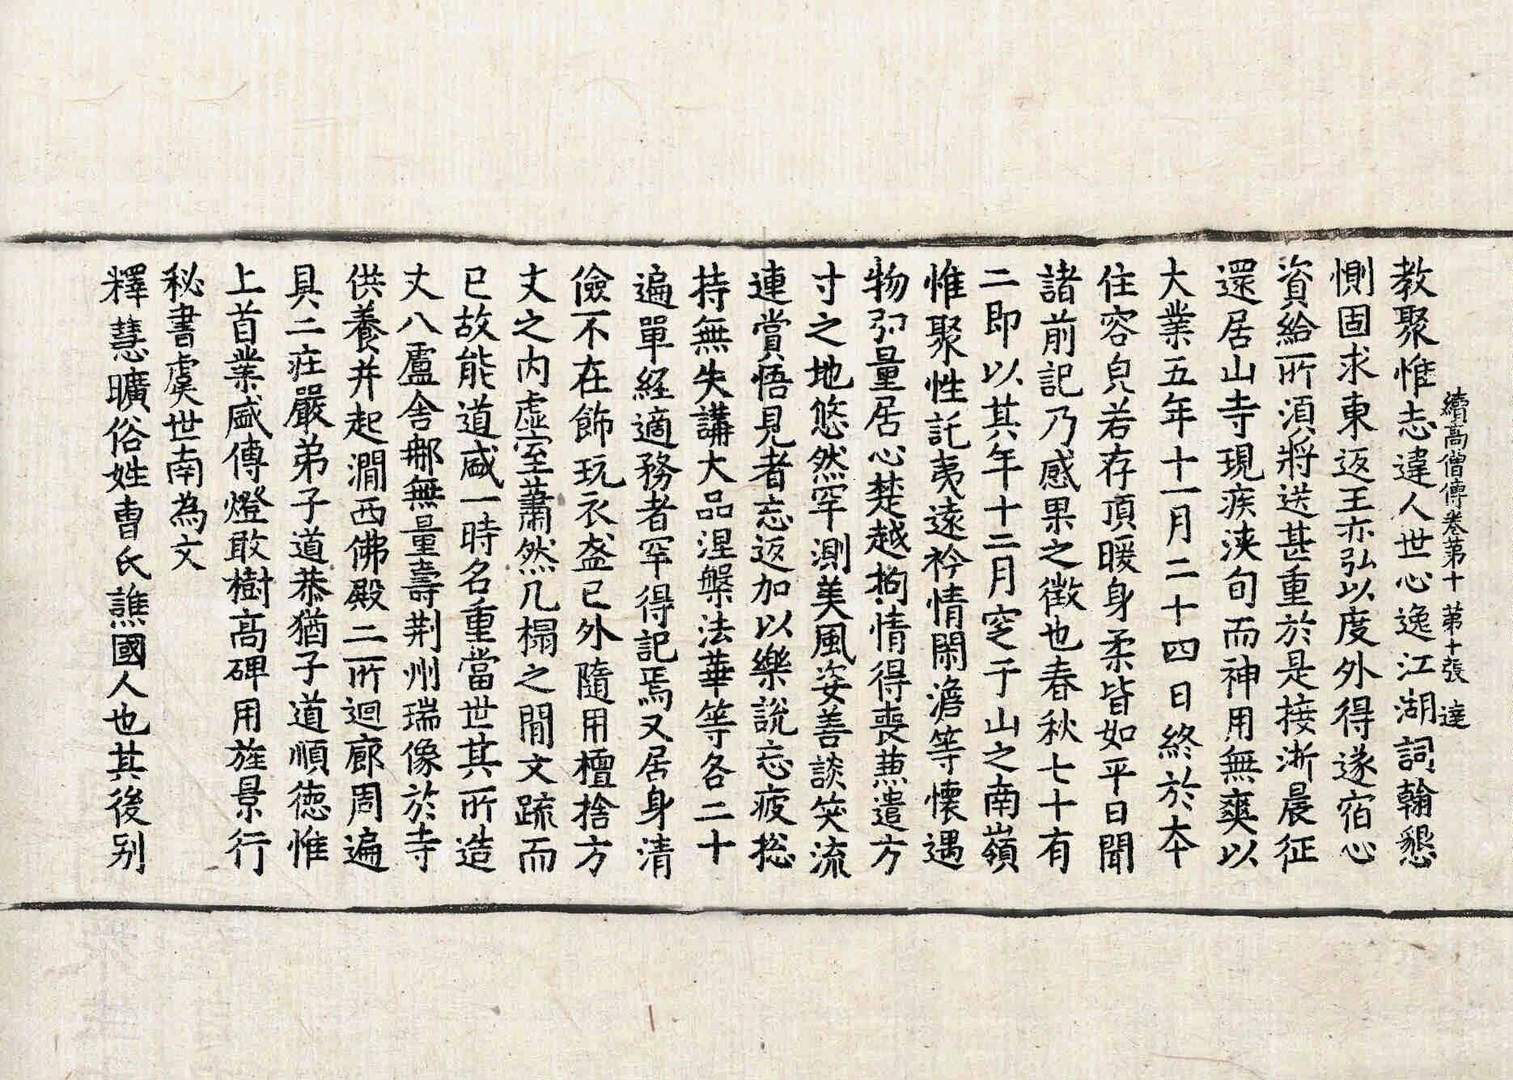 續高僧傳卷第十 第十張 達
教聚惟志違人世心逸江湖詞翰懇
惻固求東返王亦弘以度外得遂宿心
資給所須將送甚重於是接淅晨征
還居山寺現疾浹旬而神用無爽以
大業五年十一月二十四日終於本
住容皃若存頂暖身柔皆如平日聞
諸前記乃感果之徵也春秋七十有
二即以其年十二月窆于山之南嶺
惟聚性託夷遠衿情閑澹等懷遇
物弘量居心楚越拘情得喪蕉遣方
寸之地悠然罕測美風姿善談笑流
連賞悟見者忘返加以樂說忘疲捴
持無失講大品涅槃法華等各二十
遍單経適務者罕得記焉又居身清
儉不在飾玩衣盋已外隨用檀捨方
丈之内虛室蕭然几榻之閒文疏而
已故能道盛一時名重當世其所造
丈八盧舍𨚗無量壽荆州瑞像於寺
供養并起澗西佛殿二所迴廊周遍
具二莊嚴弟子道恭猶子道順徳惟
上首業盛傳燈敢樹高碑用旌景行
秘書虞世南為文
釋慧曠俗姓曹氏譙國人也其後别